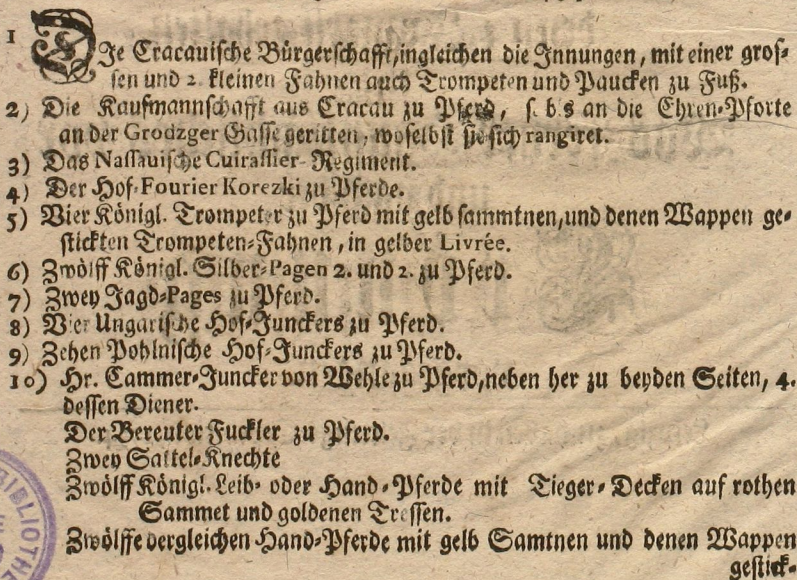 1 DIe Cracauische Bürgerschafft, ingleichen die Innungen, mit einer gros-
sen und 2. kleinen Fahnen auch Trompeten und Paucken zu Fuß.
2) Die Kaufmannschafft aus Cracau zu Pferd, s. b. s an die Ehren-Pforte
an der Grodzger Gasse geritten, woselbst sie sich rangiret.
3) Das Nassauische Cuirassier-Regiment.
4) Der Hof-Fourier Korezki zu Pferde.
5) Vier Königl. Trompeter zu Pferd mit gelb sammtnen, und denen Wappen ge-
stickten Trompeten-Fahnen, in gelber Livrée.
6) Zwölff Königl. Silber-Pagen 2. und 2. zu Pferd.
7) Zwey Jagd-Pages zu Pferd.
8) Vier Ungarische Hof-Junckers zu Pferd.
9) Zehen Pohlnische Hof-Junckers zu Pferd.
10) Hr. Cammer-Juncker von Wehle zu Pferd, neben her zu beyden Seiten, 4.
dessen Diener.
Der Bereuter Fuckler zu Pferd.
Zwey Sattel-Knechte
Zwölff Königl. Leib- oder Hand-Pferde mit Tieger-Decken auf rothen
Sammet und goldenen Tressen.
Zwölffe dergleichen Hand-Pferde mit gelb Samtnen und denen Wappen
gestick-
BIBLIOTHE